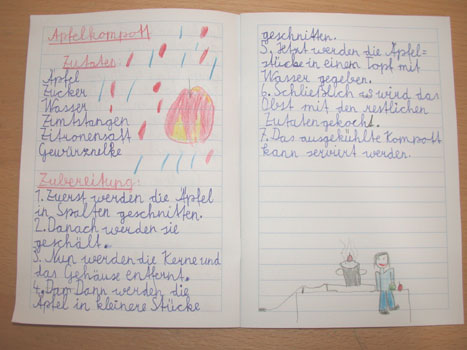 Apfelkompott
Zutaten:
Äpfel
Zucker
Wasser
Zimtstangen
Zitronensaft
Gewürznelke
Zubereitung:
1. Zuerst werden die Äpfel
in Spalten geschnitten.
2. Danach werden sie
geschält.
3. Nun werden die Kerne und
das Gehäuse entfernt.
4. Dann werden die
Äpfel in kleinere Stücke
geschnitten.
5. Jetzt werden die Apfel=
stücke in einem Topf mit
Wasser gegeben.
6. Schließlich wird das
Obst mit den restlichen
Zutaten gekocht.
7. Das ausgekühlte Kompott
kann serviert werden.